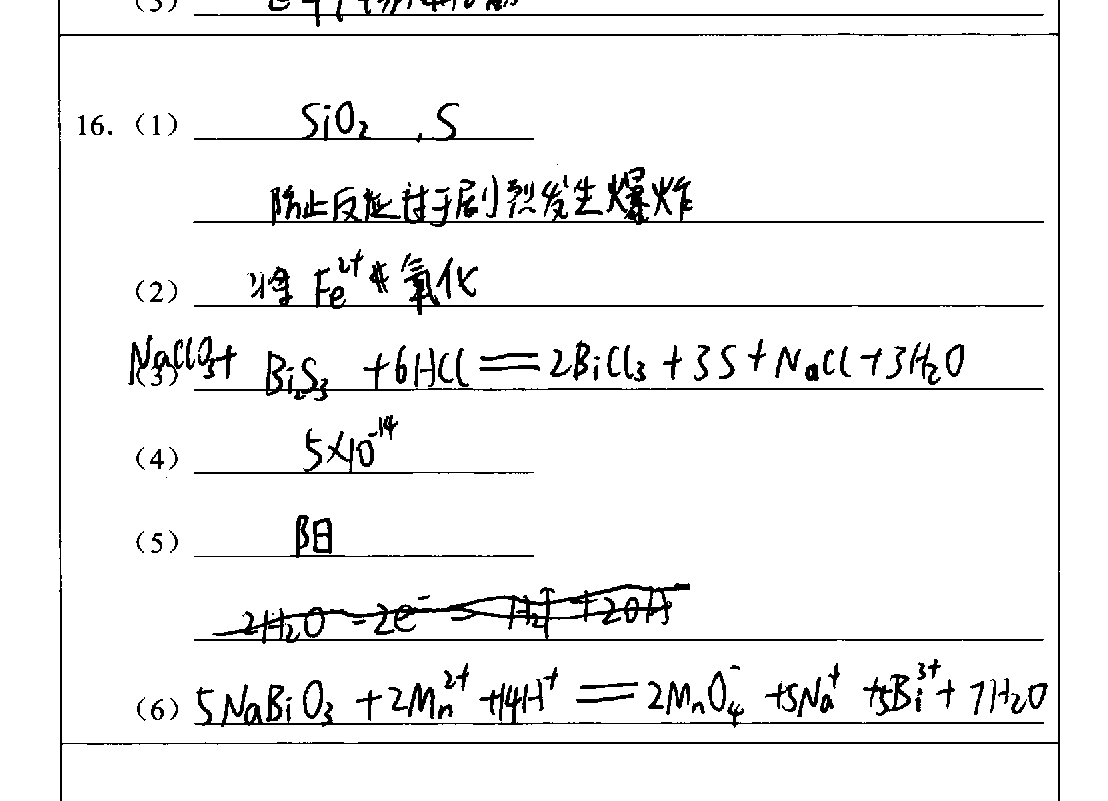 (3)
16. (1) SiO₂ , S
防止反应过于剧烈发生爆炸
(2) 将 Fe²⁺ 氧化
(3) NaClO₃ + Bi₂S₃ + 6HCl == 2BiCl₃ + 3S + NaCl + 3H₂O
(4) 5×10⁻¹⁴
(5) 阳
2H₂O - 2e⁻ = H₂↑ + 2OH
(6) 5NaBiO₃ + 2Mn²⁺ + 14H⁺ == 2MnO₄⁻ + 5Na⁺ + 5Bi³⁺ + 7H₂O